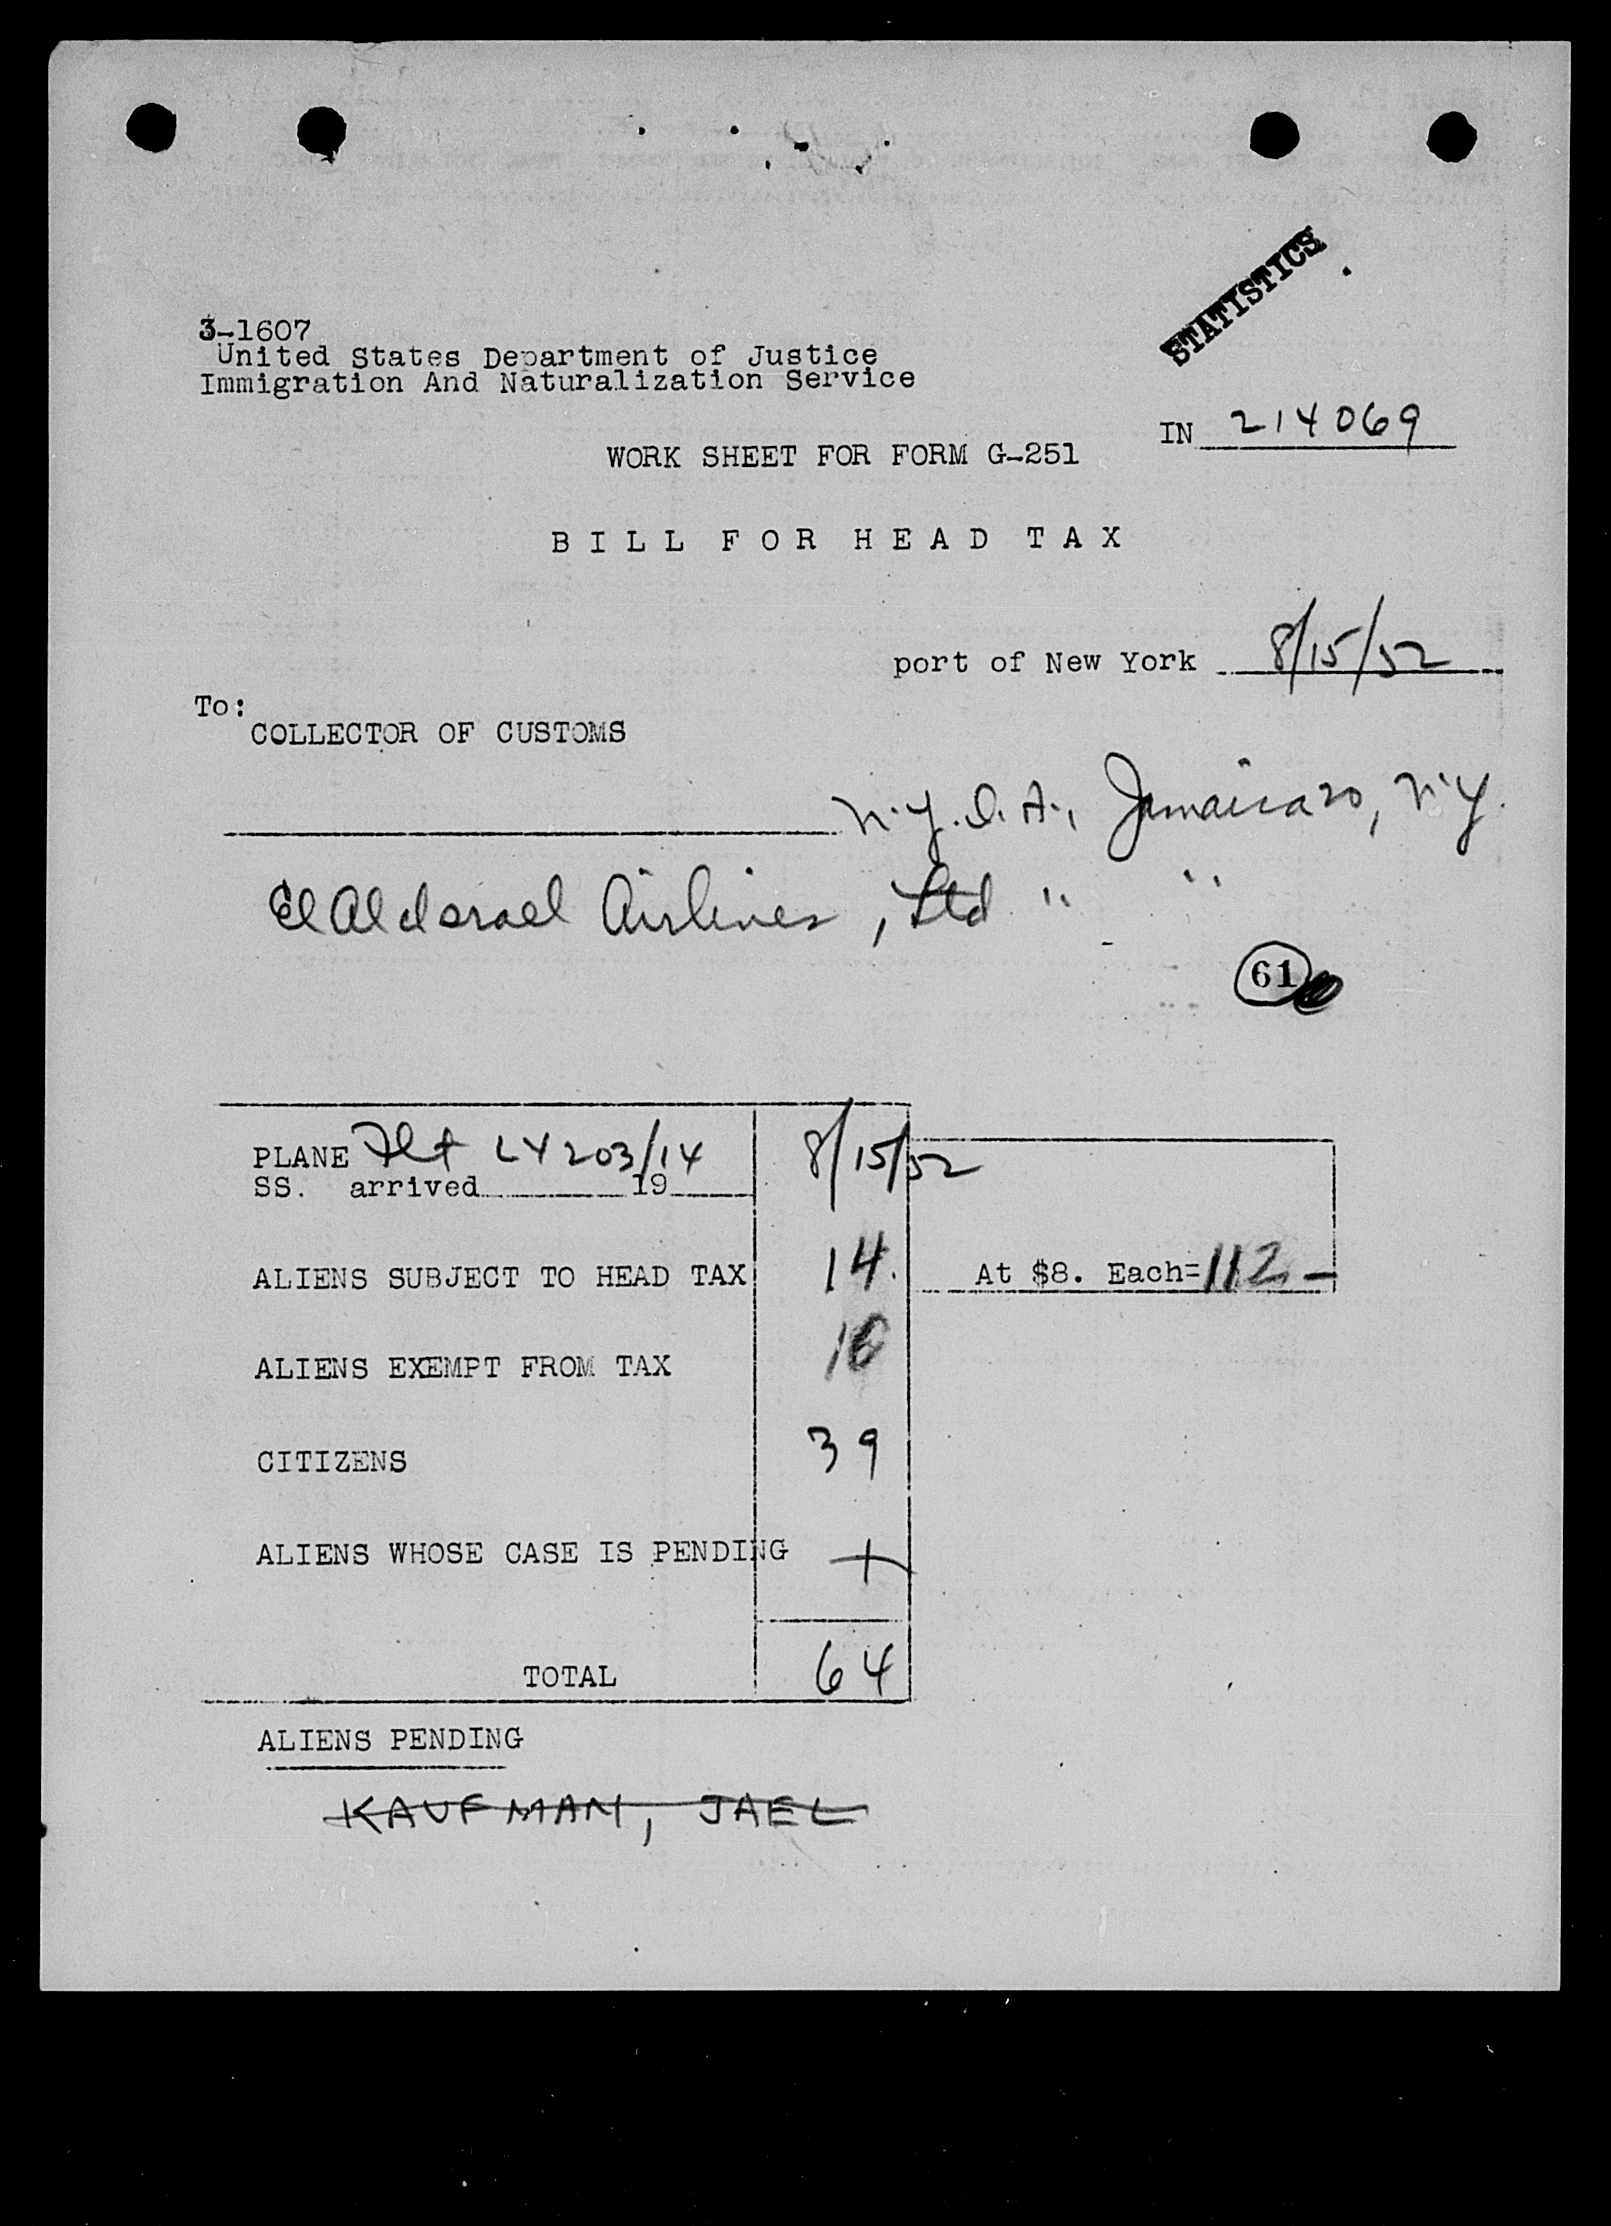 STATISTICS
3-1607
United States Department of Justice
Immigration And Naturalization Service
IN 214069
WORK SHEET FOR FORM G-251
BILL FOR HEAD TAX
port of New York 8/15/52
To:
COLLECTOR OF CUSTOMS
N.Y.I.A., Jamaica 20, N.Y.
El Al Israel Airlines, Ltd " "
61
PLANE Flt LY 203/14 8/15/52
SS. arrived 19
ALIENS SUBJECT TO HEAD TAX 14. At $8. Each=112 -
ALIENS EXEMPT FROM TAX
CITIZENS 39
ALIENS WHOSE CASE IS PENDING
TOTAL 64
ALIENS PENDING
KAUFMAN, JAEL